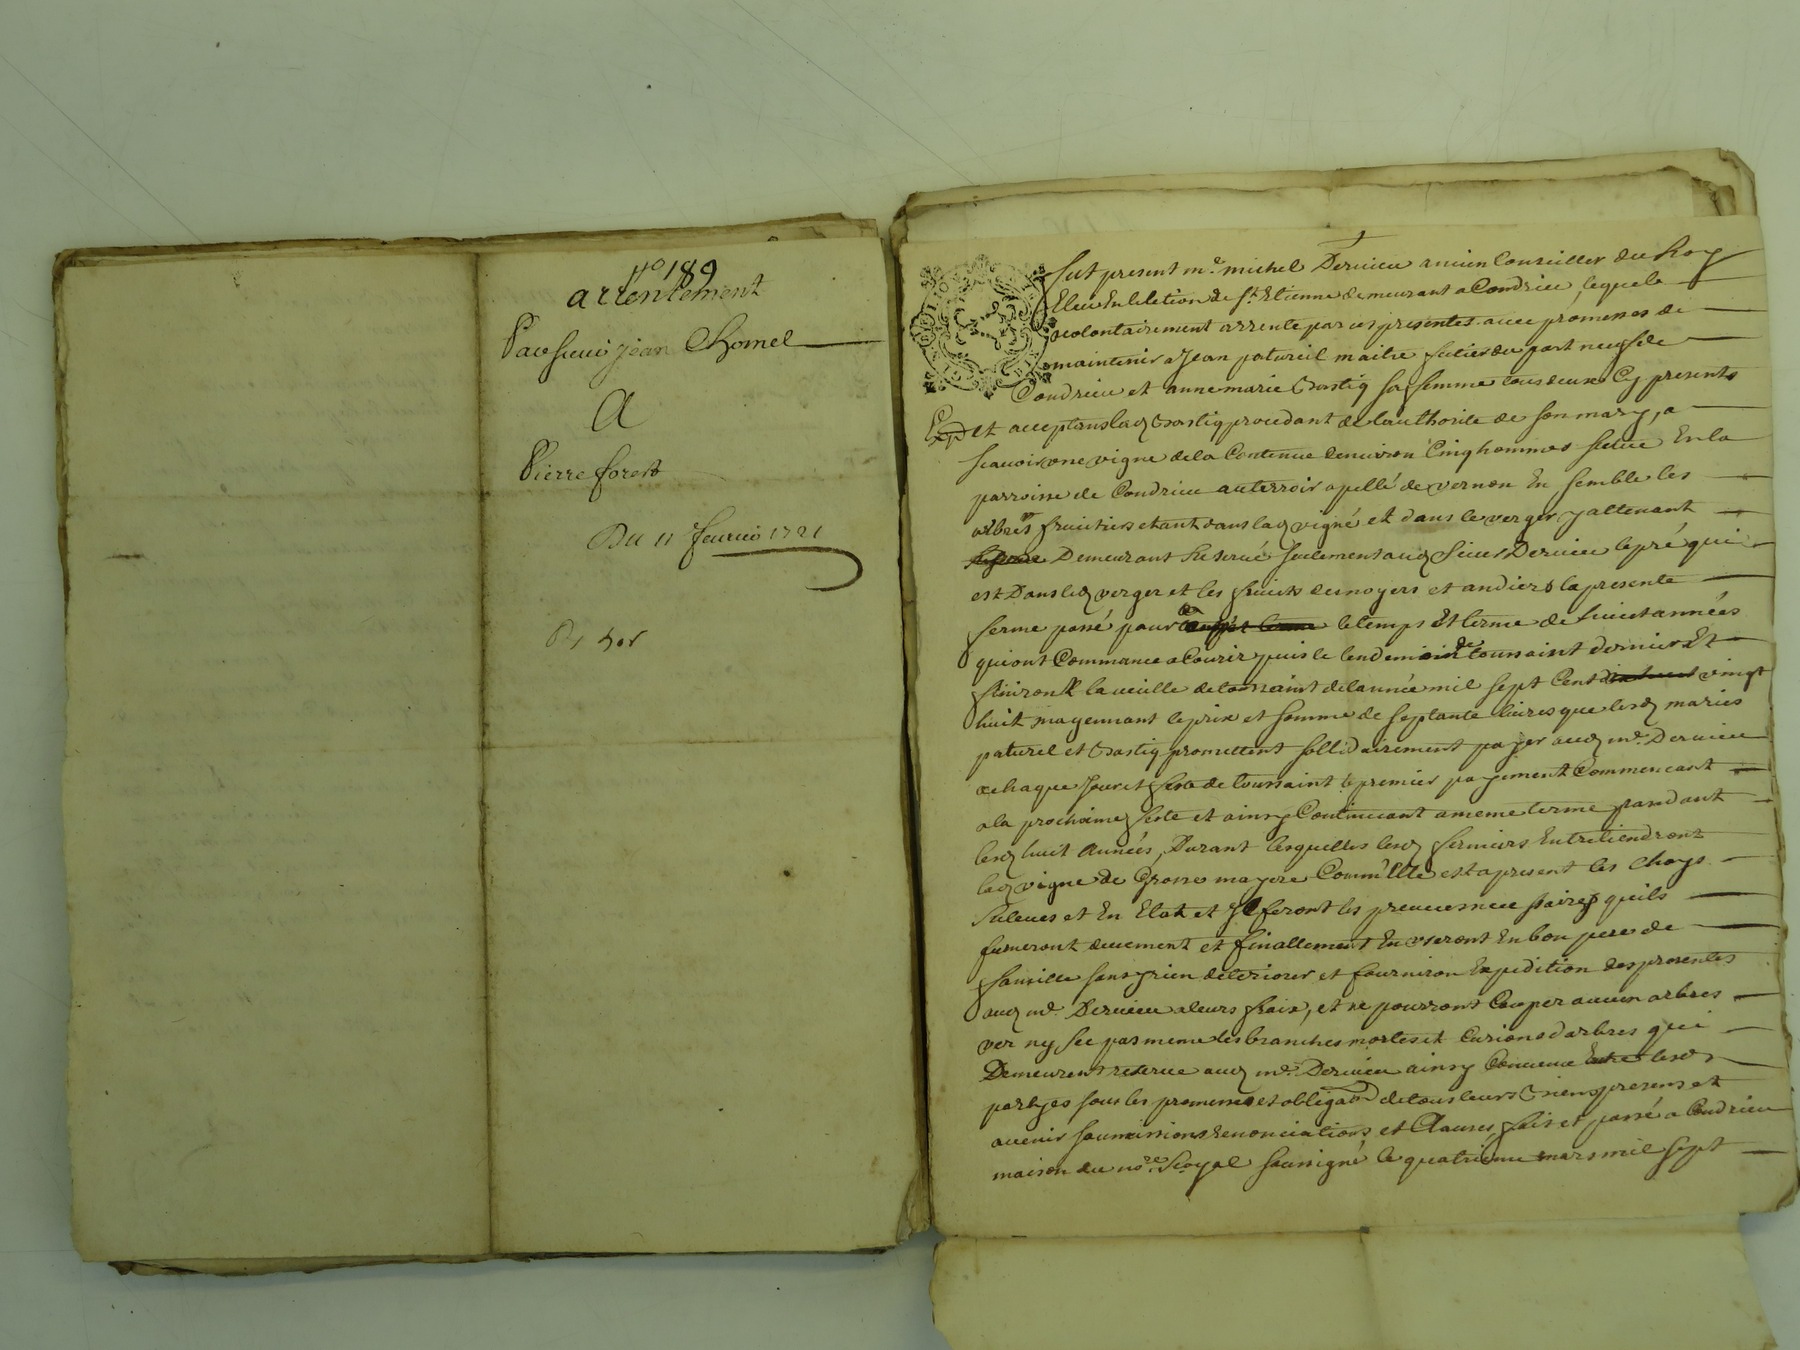 no 189
arrentement
Par sieur jean Chomel
A
Pierre forest
Du 11 feurier 1721
fut present me. michel Deruieu ancien Conseiller du Roy
Eleu En lelétion de st. Etienne demeurant a Condrieu, lequel
volontairement arrente par ces presentes auec promesses de
maintenir a Jean patureil maitre du port neuf de
Condrieu et anne marie Bastiq sa femme tous deux Cy presents
et acceptans lad Bastiq procedant de lauthorité de son mary, a
scauoir une vigne de la Contenue denuiron Cinq hommes scitué En la
parroisse de Condrieu au terroir apellé de vernon En semble les
arbres fruitiers etant dans lad vigne et dans le verger y attenant
Demeurant Reserué seulement aud sieur Deruieu le pré qui
est Dans led verger et les fruits des noyers et andiers la presente
ferme passé pour le temps Et terme de huict années
qui ont Commencé a Courir puis le lendemain de toussaint dernier Et
finiront la ueille de toussaint de lannée mil sept Cent vingt
huit moyennant le prix et somme de septante liures que lesd mariés
paturel et Bastiq promettent sollidairement payer aud me. Deruieu
a chaque jour et feste de toussaint le premier payement Commencant
a la prochaine feste et ainsy Continuant a meme terme pandant
lesd huit années, Durant lesquelles lesd fermiers Entretiendront
lad vigne de grosse mayere Comm'Elle est apresent les chays
Releués et En Etat et y feront les prouues necessaires quils
fumeront duement et finallement En vseront En bon pere de
famille sans y rien deteriorer et fourniron Expedition des presentes
aud me. Deruieu a leurs fraix, et ne pourront Couper aucun arbres
ver ny sec pas meme les branches mortes et Curions darbres qui
Demeurent reserué aud me. Deruieu ainsy Conuenu Entre lesd
partyes sous les promesses et obligaon de tous leurs Biens presens et
auenir soumissions renonciations et Clauses, fait et passé a Condrieu
maison du nore. Royal soussigné le quatrieme mars mil sept